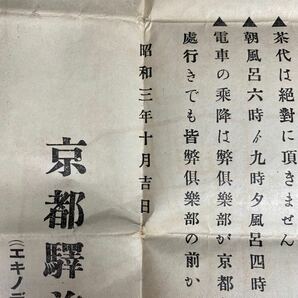 ▲茶代は絕對に頂きません
▲朝風呂六時ゟ九時夕風呂四時
▲電車の乘降は弊俱樂部が京都
處行きでも皆弊俱樂部の前か
昭和三年十月吉日
京都驛
(エキノデ